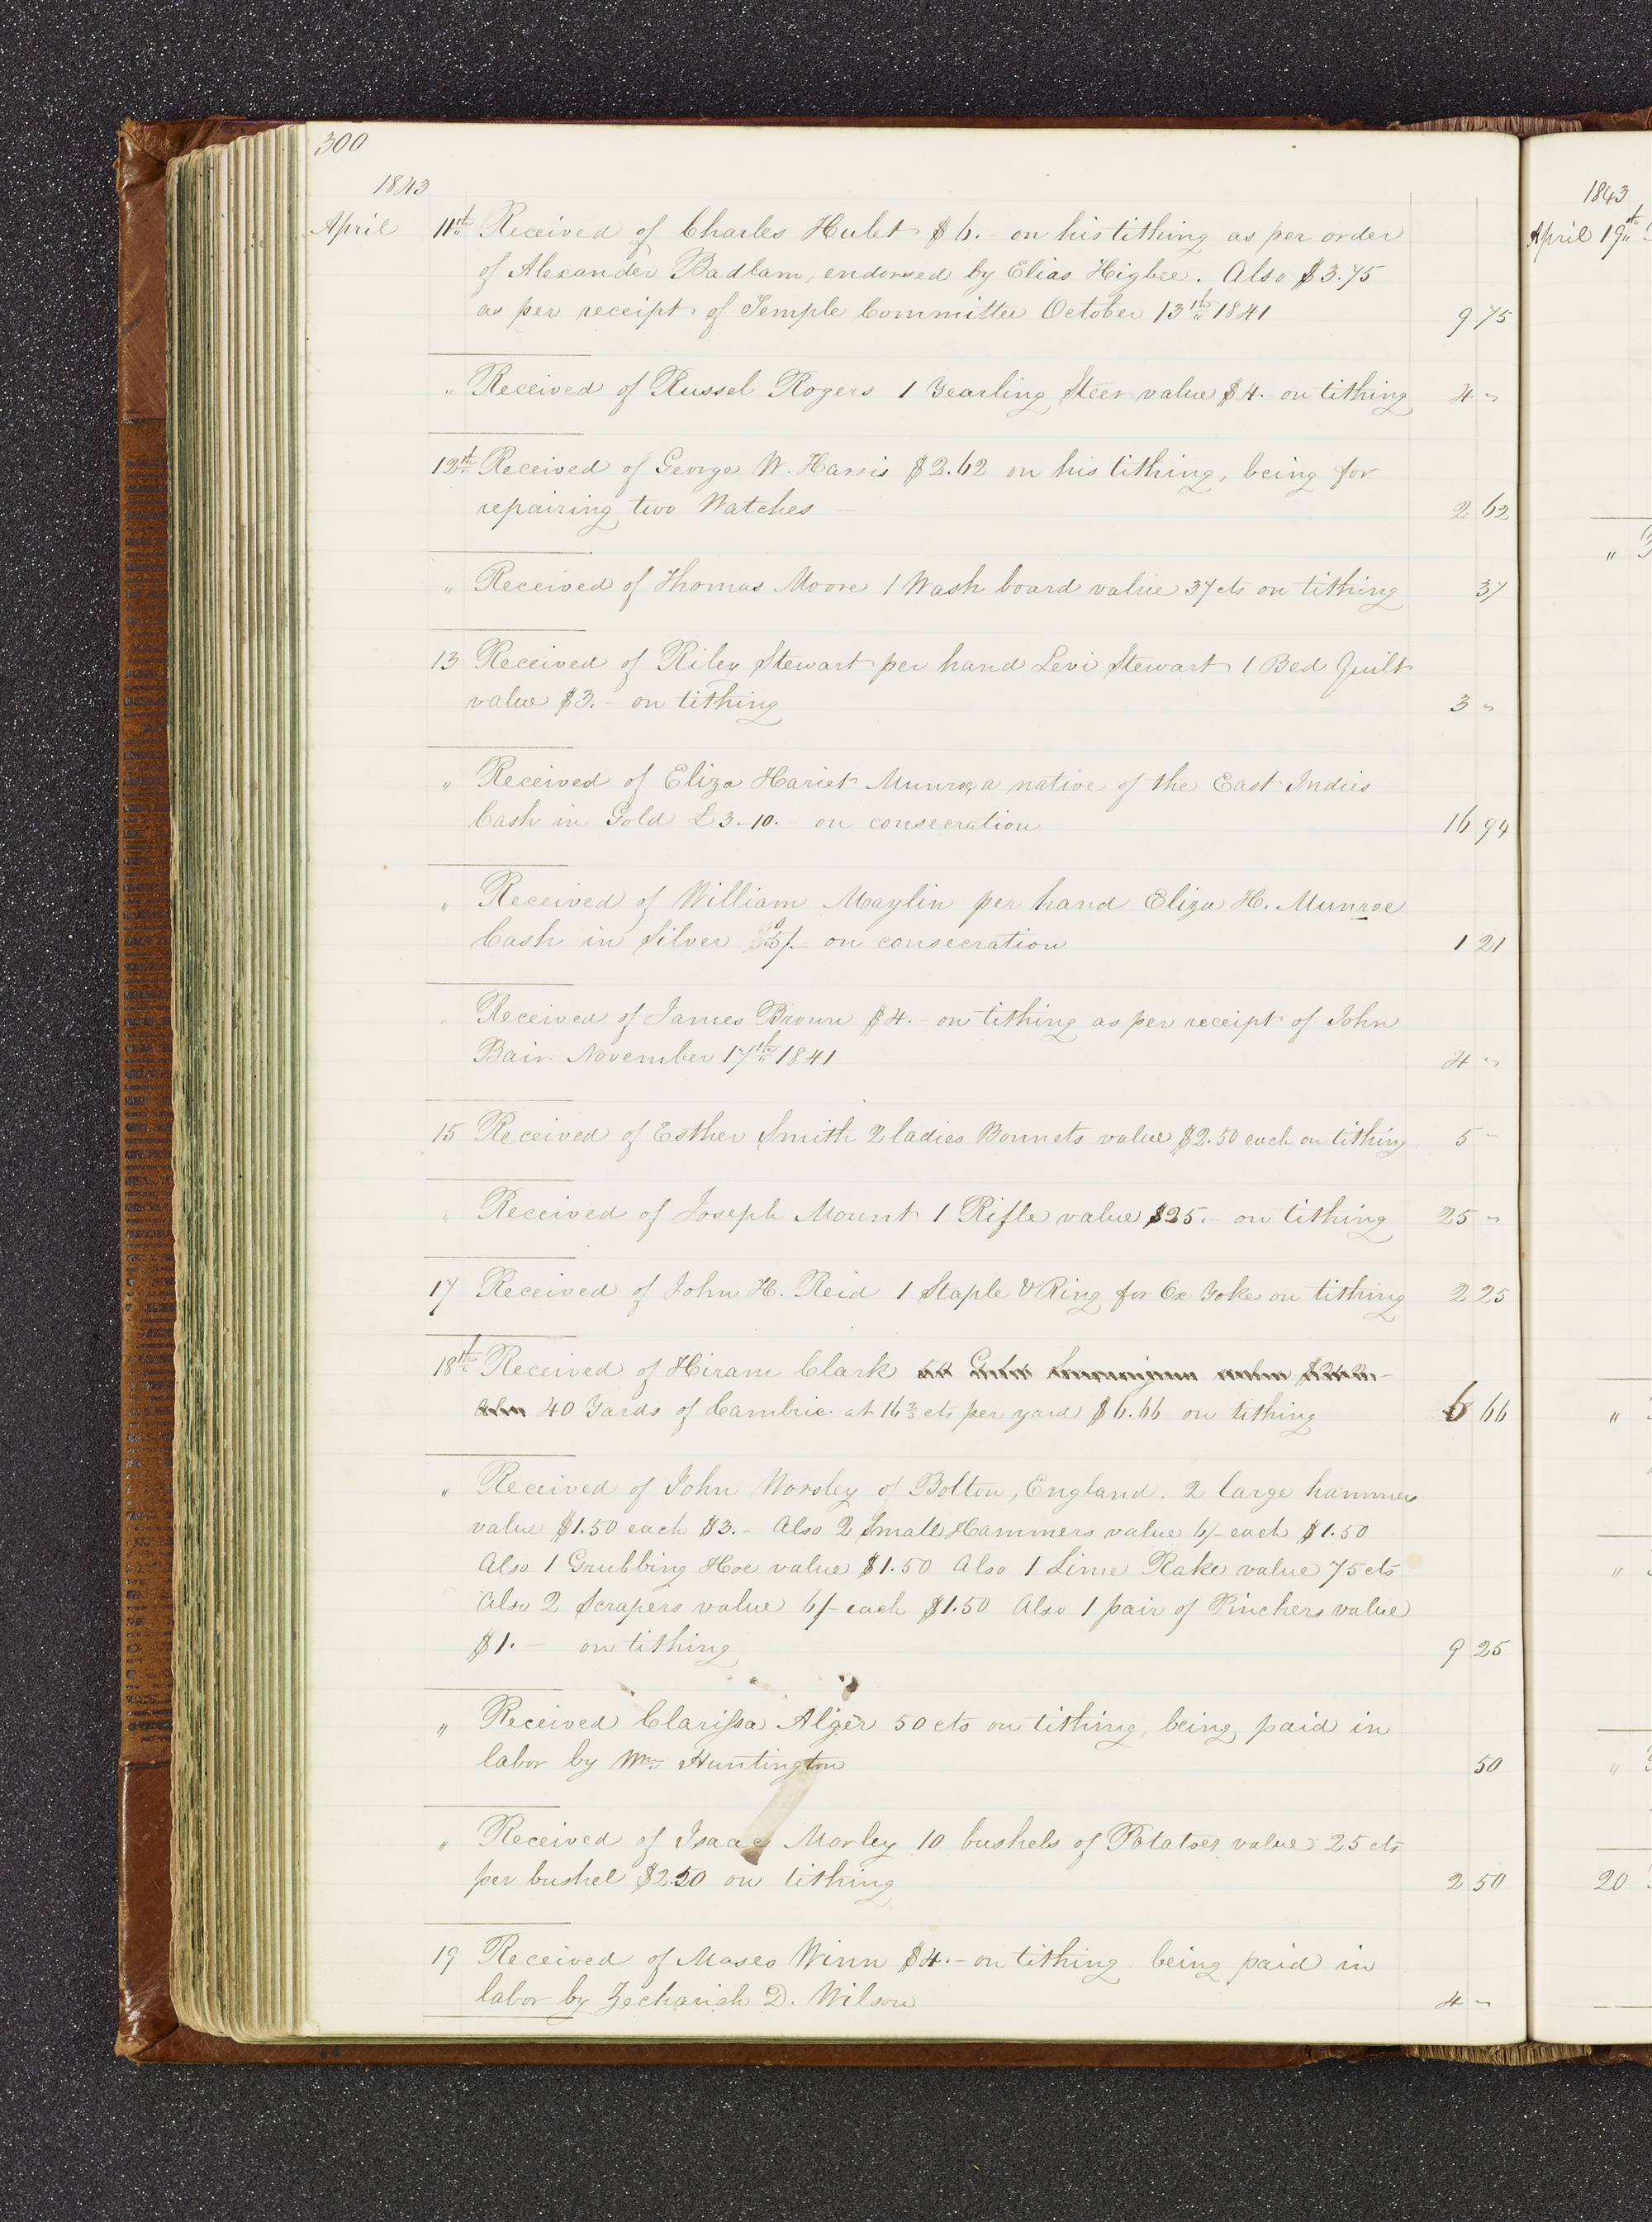 300
1843
April 11th Received of Charles Hulet $6.- on his tithing as per order
of Alexander Badlam, endorsed by Elias Higbee. Also $3.75
as per receipt of Temple Committee October 13th 1841 9 75
" Received of Russel Rogers 1 Yearling Steer value $4.- on tithing 4 "
12th Received of George W. Harris $2.62 on his tithing, being for
repairing two Watches — 2 62
" Received of Thomas Moore 1 Wash board value 37 cts on tithing 37
13 Received of Riley Stewart per hand Levi Stewart 1 Bed Quilt
value $3.- on tithing 3 "
" Received of Eliza Hariet Munroe, a native of the East Indies
Cash in Gold £3.10.- on consecration 16 94
" Received of William Maylin per hand Eliza H. Munroe
Cash in Silver 5/- on consecration 1 21
" Received of James Brown $4.- on tithing as per receipt of John
Bair November 17th 1841 4 "
15 Received of Esther Smith 2 ladies Bonnets value $2.50 each on tithing 5 -
" Received of Joseph Mount 1 Rifle value $25.- on tithing 25 "
17 Received of John H. Reid 1 Staple & Ring for Ox Yoke on tithing 2 25
18th Received of Hiram Clark
40 Yards of Cambric at 16 2/3 cts per yard $6.66 on tithing 6 66
" Received of John Worsley of Bolton, England. 2 large hammers
value $1.50 each $3.- Also 2 Small Hammers value 6/- each $1.50
Also 1 Grubbing Hoe value $1.50 Also 1 Lime Rake value 75 cts
Also 2 Scrapers value 6/- each $1.50 Also 1 pair of Pinchers value
$1.- on tithing 9 25
" Received Clarissa Alger 50 cts on tithing, being paid in
labor by Wm. Huntington 50
" Received of Isaac Morley 10 bushels of Potatoes value 25 cts
per bushel $2.50 on tithing 2 50
19 Received of Moses Winn $4.- on tithing being paid in
labor by Zechariah D. Wilson 4 "
1843
April 19th
"
"
"
"
20